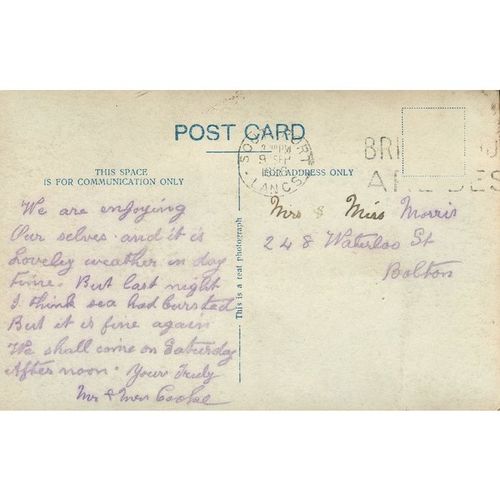 POST CARD
THIS SPACE
IS FOR COMMUNICATION ONLY
FOR ADDRESS ONLY
SOUTHPORT
PM
9 SEP
LANCS
BRI
AR BES
This is a real photograph
We are enjoying
Our selves and it is
Lovely weather in day
time. But last night
I think sea had bursted
But it is fine again
We shall come on Saturday
After noon. Your Truly
Mr & Mrs
Mrs & Miss Morris
248 Waterloo St
Bolton